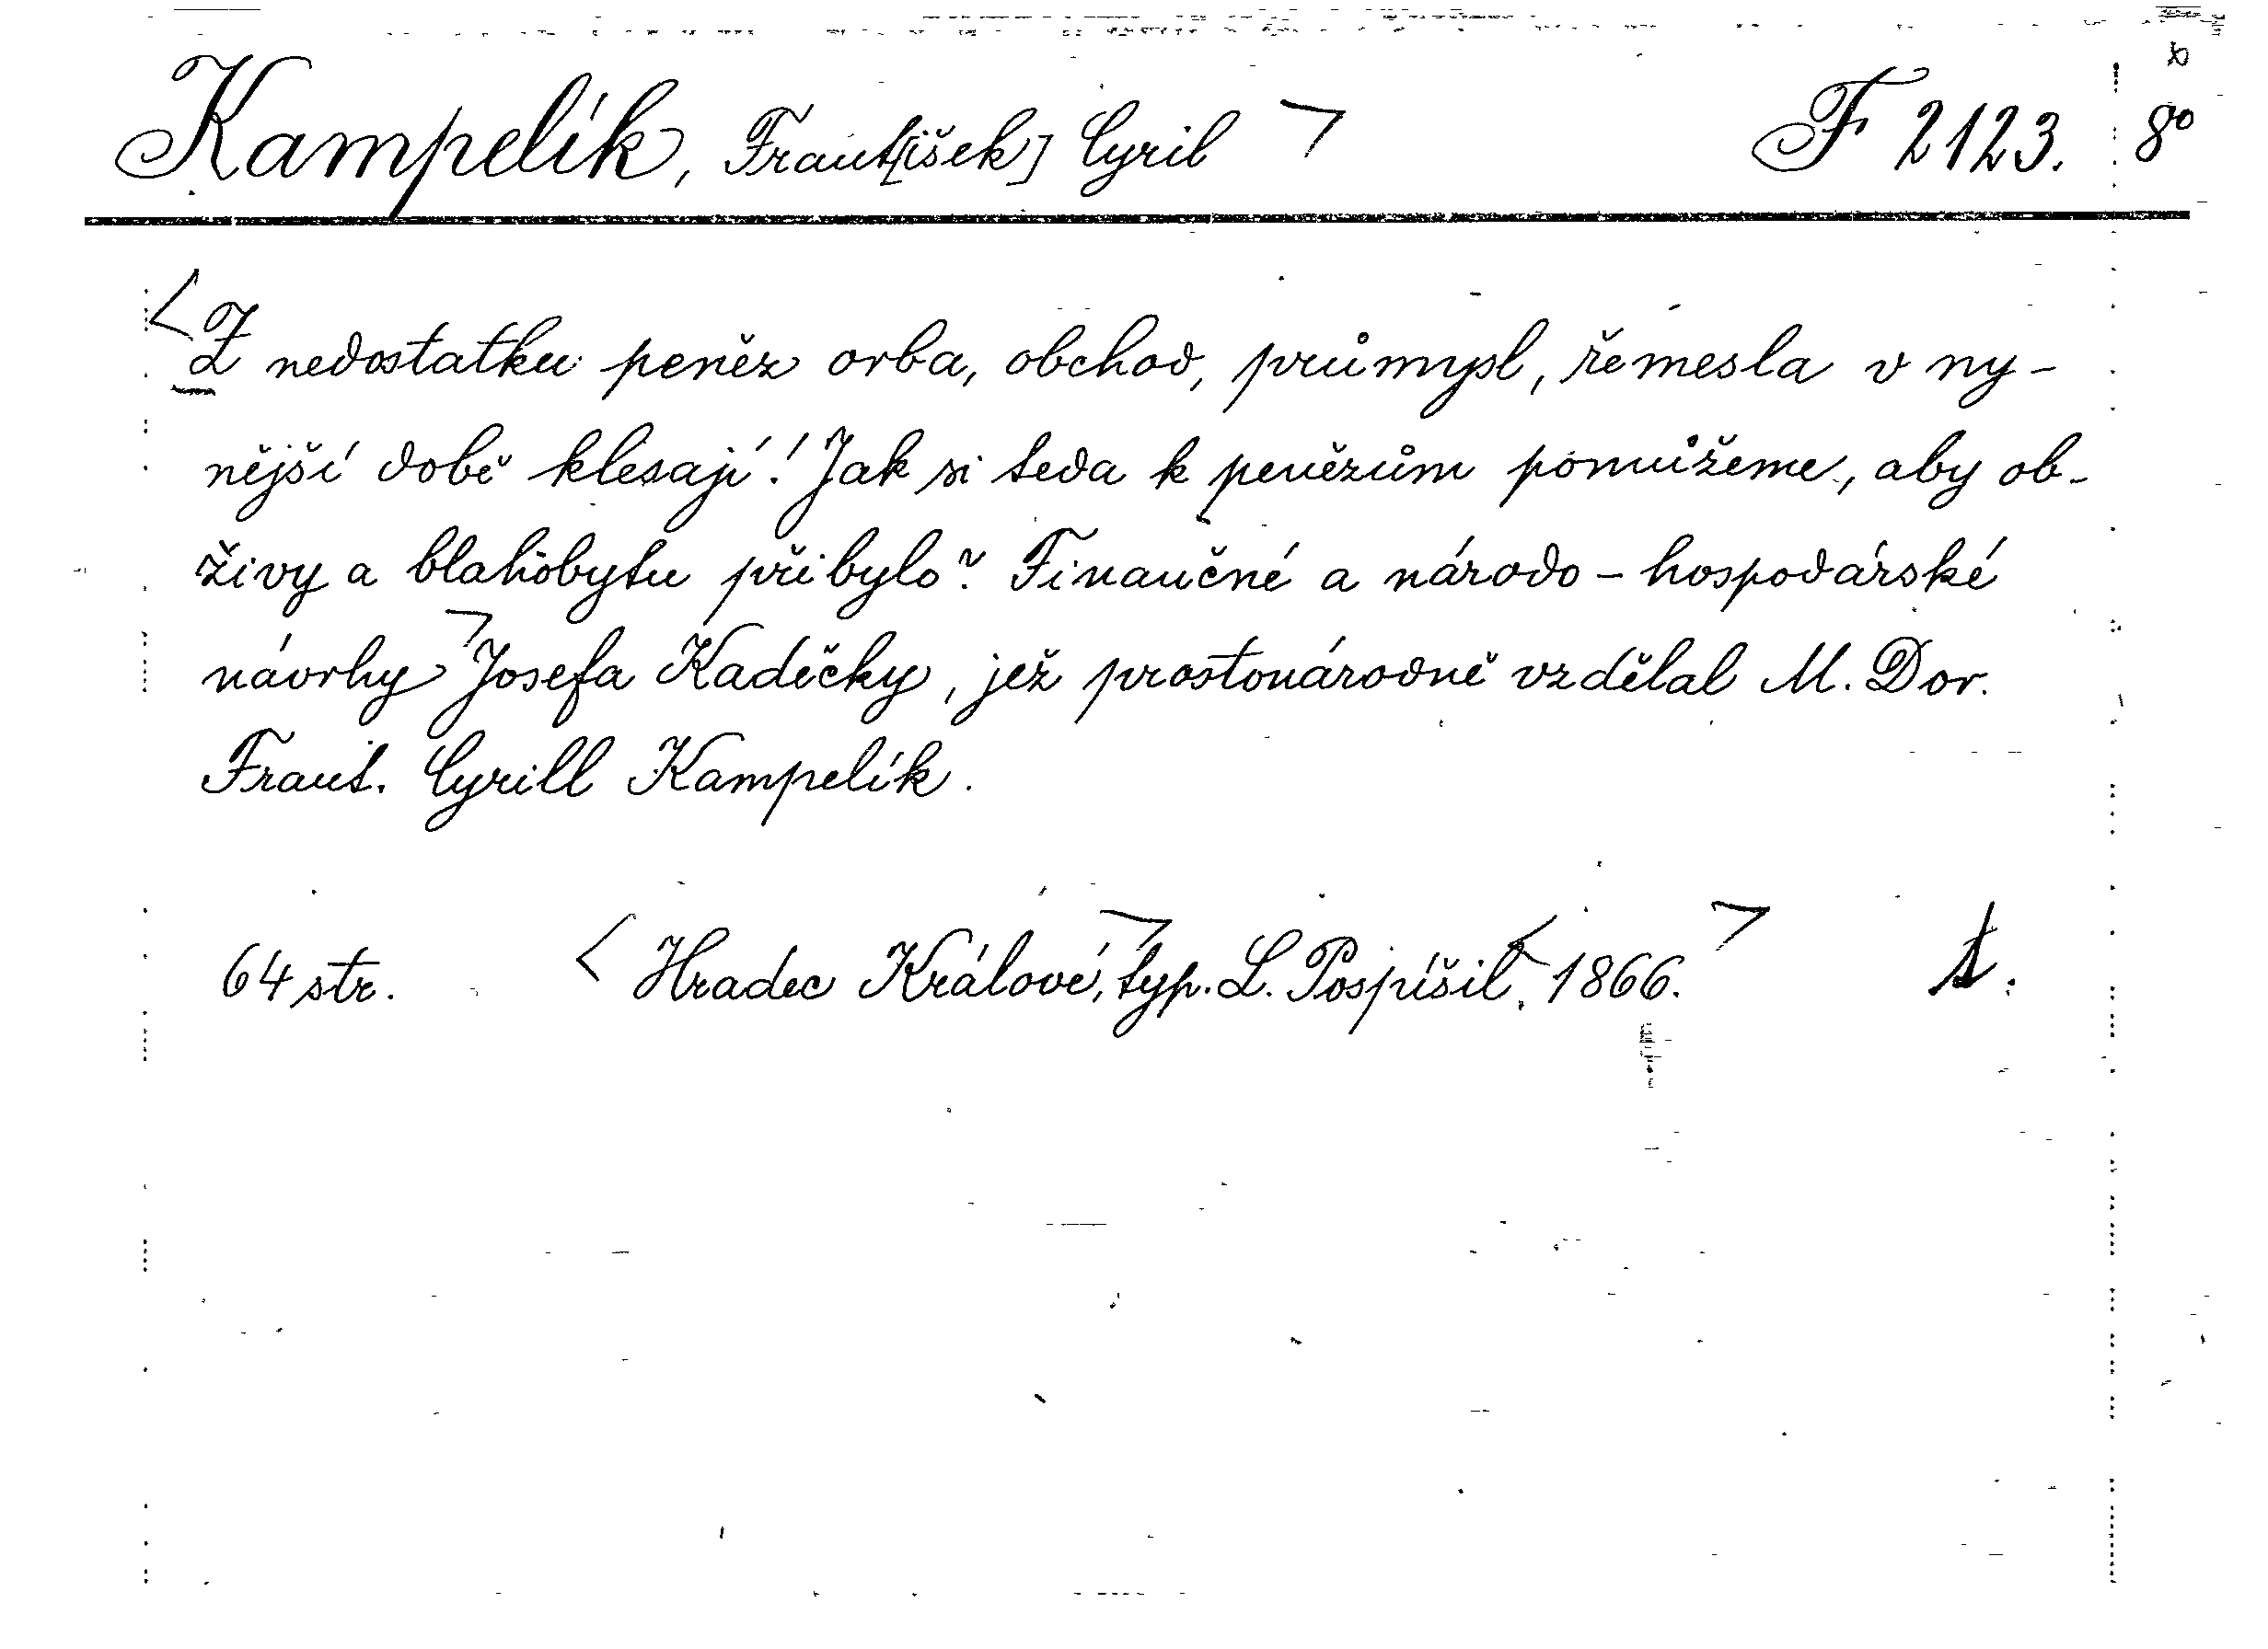 Kampelík, Frant[išek] Cyril F 2123. 8°
Z nedostatku peněz orba, obchod, průmysl, řemesla v ny-
nější době klesají! Jak si teda k penězům pomůžeme, aby ob-
živy a blahobytu přibylo? Finančné a národo-hospodárské
návrhy Josefa Kaděčky, jež prostonárodně vzdělal M. Dor.
Frant. Cyrill Kampelík.
64 str. Hradec Králové, typ. L. Pospíšil, 1866. t.